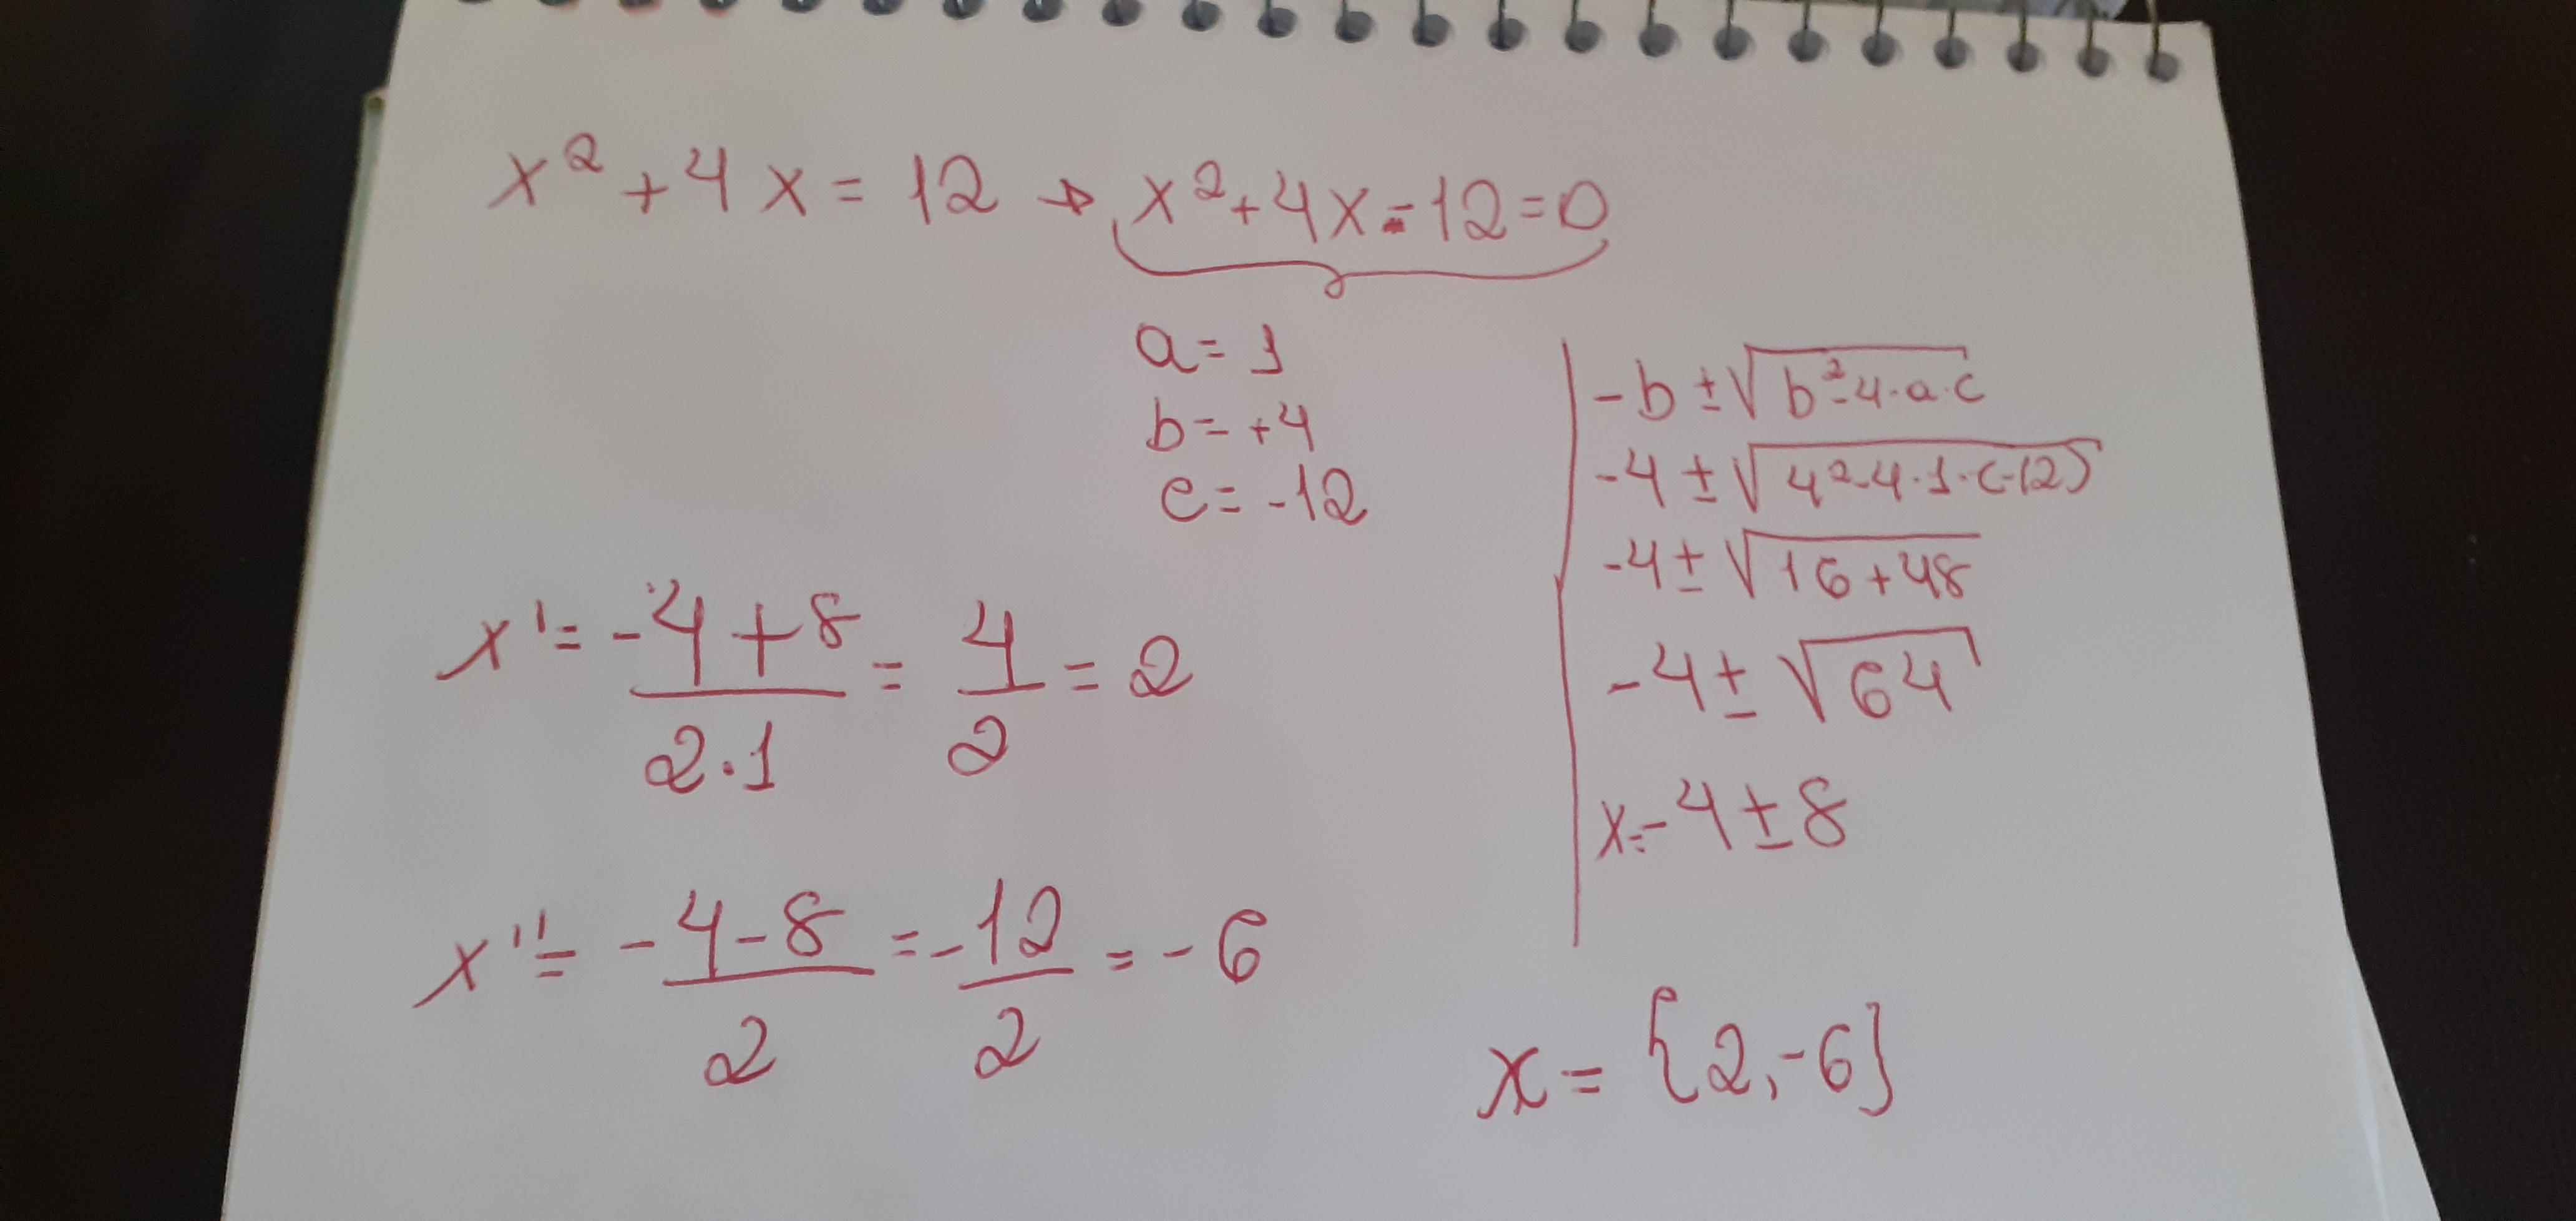 x² + 4x = 12 → x² + 4x - 12 = 0
a = 1
b = +4
c = -12
-b ± √b² - 4·a·c
-4 ± √4² - 4·1·(-12)
-4 ± √16 + 48
-4 ± √64
x = -4 ± 8
x' = -4 + 8 / 2·1 = 4/2 = 2
x'' = -4 - 8 / 2 = -12/2 = -6
x = {2, -6}